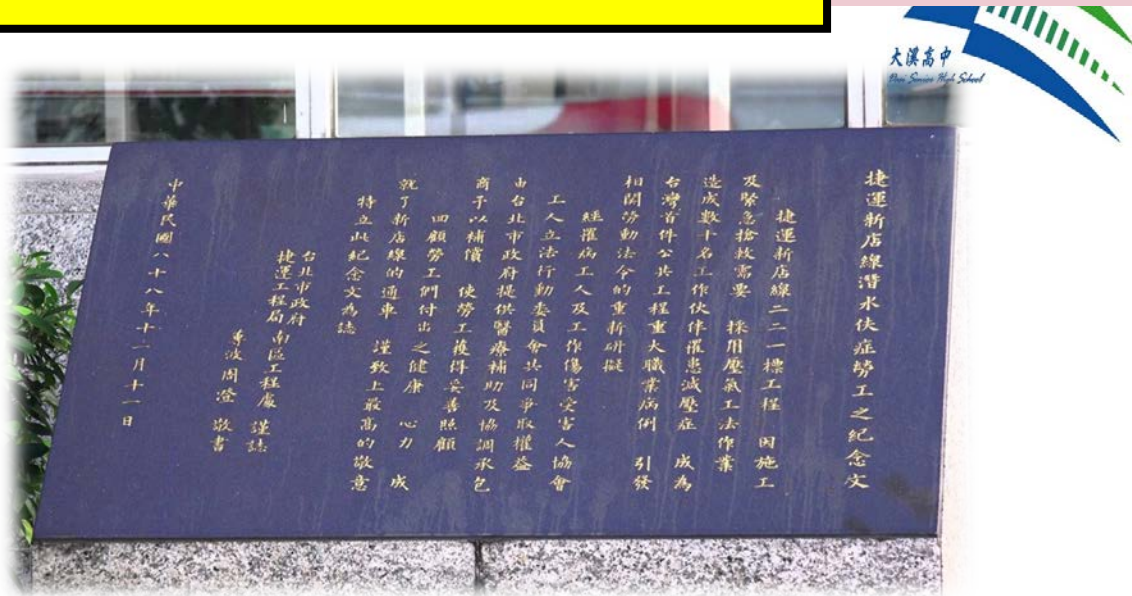 大溪高中
Daxi Senior High School
捷運新店線潛水伕症勞工之紀念文
捷運新店線二二一標工程 因施工
及緊急搶救需要 採用壓氣工法作業
造成數十名工作伙伴罹患減壓症 成為
台灣首件公共工程重大職業病例 引發
相關勞動法令的重新研擬
經罹病工人及工作傷害受害人協會
工人立法行動委員會共同爭取權益
由台北市政府提供醫療補助及協調承包
商予以補償 使勞工獲得妥善照顧
回顧勞工們付出之健康 心力 成
就了新店線的通車 謹致上最高的敬意
特立此紀念文為誌
台北市政府
捷運工程局 南區工程處 謹誌
周澄 敬書
中華民國八十八年十一月十一日